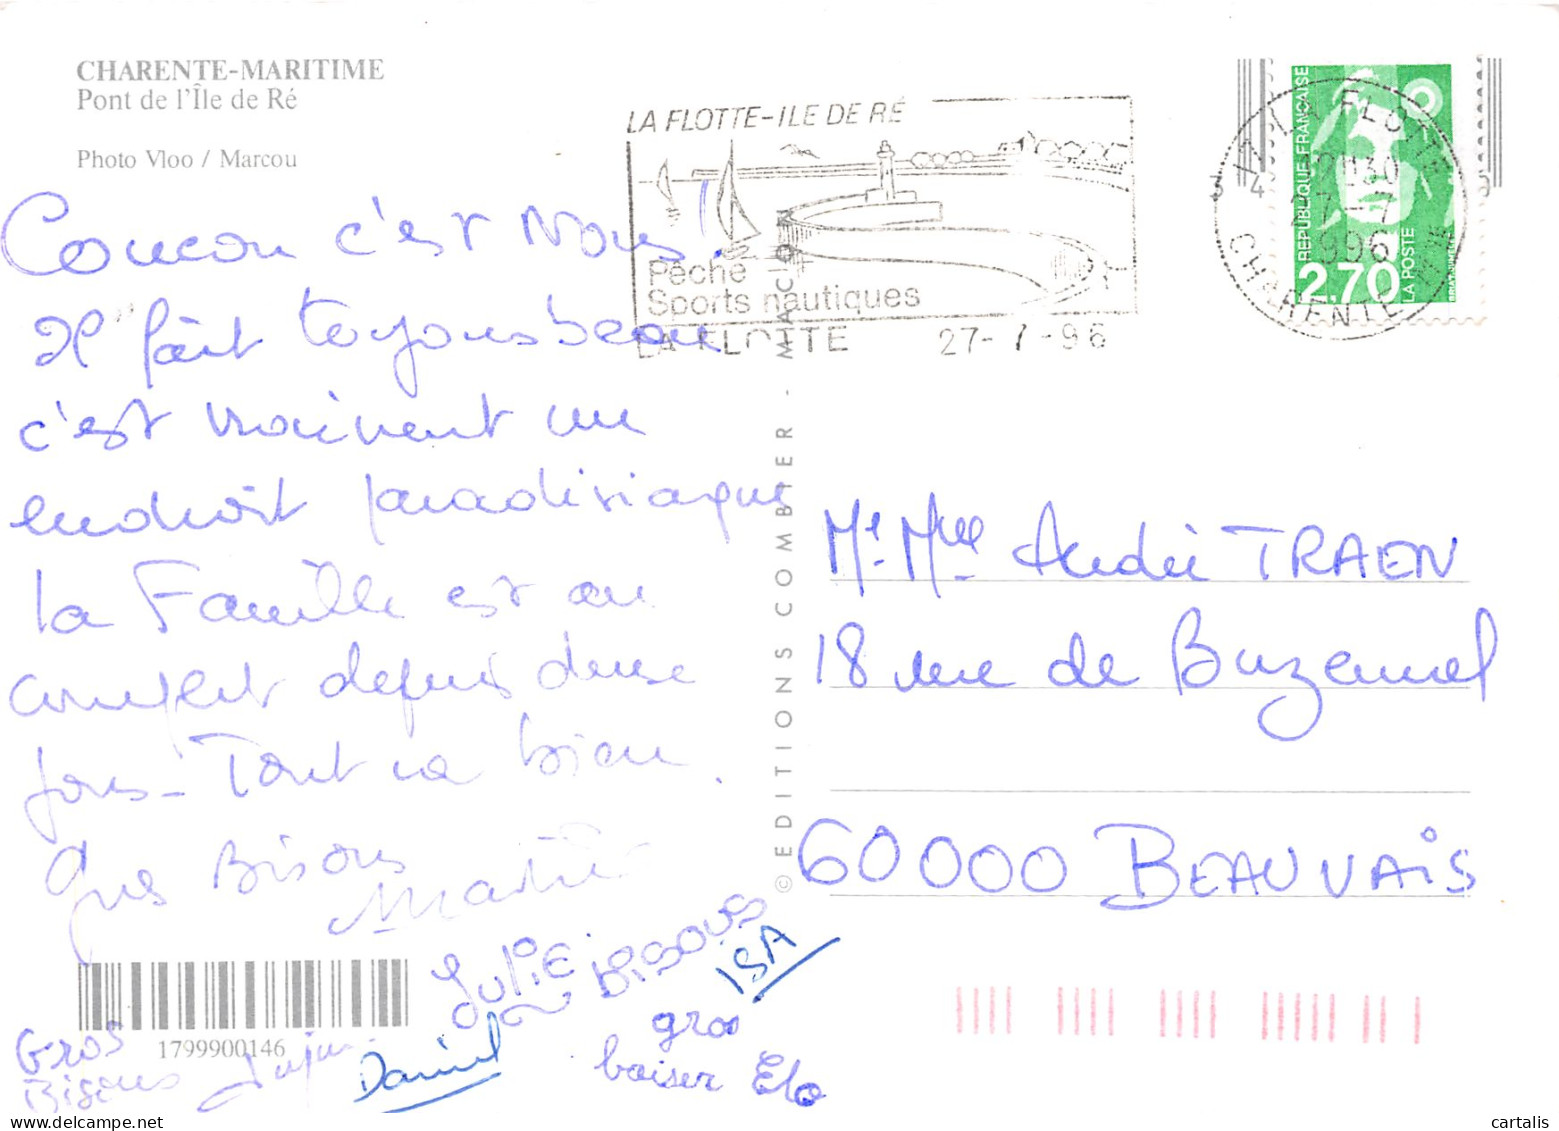 CHARENTE-MARITIME
Pont de l'Île de Ré
Photo Vloo / Marcou
LA FLOTTE-ILE DE RÉ
Pêche
Sports nautiques
LA FLOTTE 27-7-96
17 LA FLOTTE
27-7
1996
CHARENTE MME
REPUBLIQUE FRANÇAISE
2,70
LA POSTE
Coucou c'est Nous.
Il fait toujours beau
c'est vraiment un
endroit paradisiaque
la Famille est au
complet depuis deux
jours - Tout va bien.
Gros Bisous
Martine
JULIE BISOUS
ISA
Gros
Bisous Juju
Daniel
gros
baiser Elo
1799900146
© EDITIONS COMBIER - MACON
Mr. Mme André TRAEN
18 rue de Buzenval
60000 BEAUVAIS
cartalis
www.delcampe.net